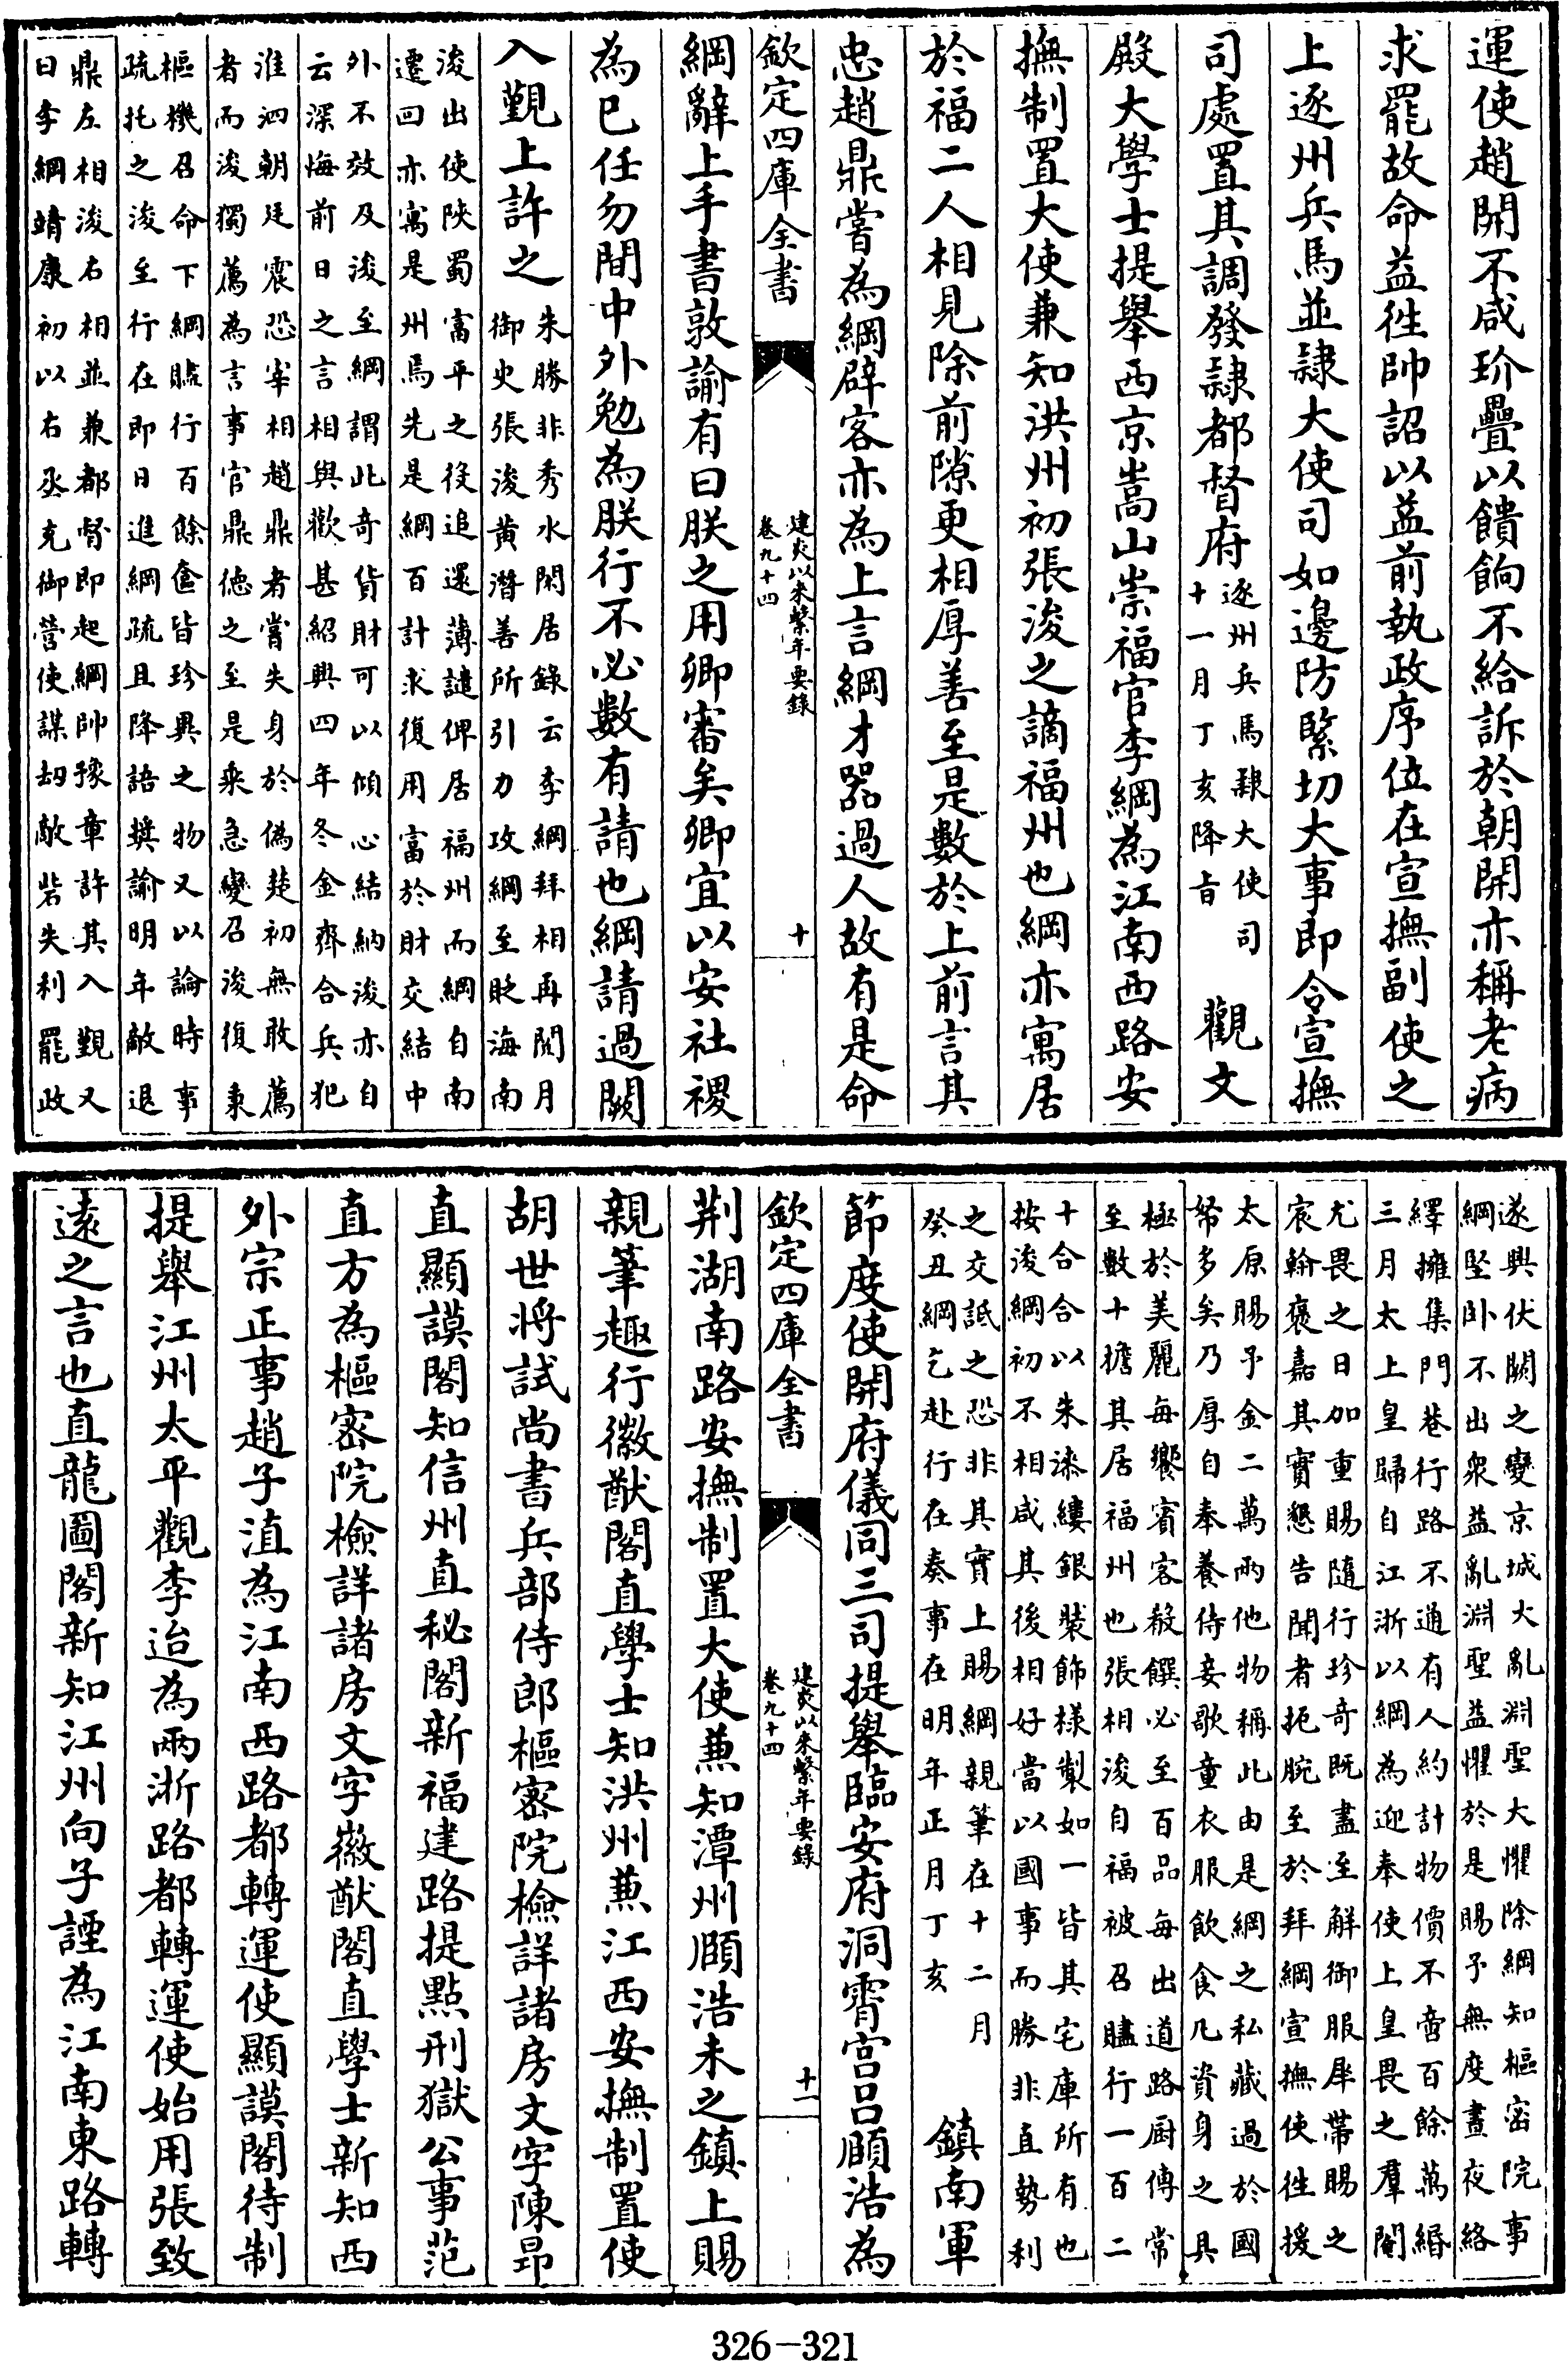 運使趙開不咸玠疊以饋餉不給訴於朝開亦稱老病
求罷故命益徃帥詔以益前執政序位在宣撫副使之
上逐州兵馬並隷大使司如邊防緊切大事即令宣撫
司處置其調發隷都督府逐州兵馬隸大使司十一月丁亥降旨觀文
殿大學士提舉西京嵩山崇福宫李綱為江南西路安
撫制置大使兼知洪州初張浚之謫福州也綱亦寓居
於福二人相見除前隙更相厚善至是數於上前言其
忠趙鼎嘗為綱辟客亦為上言綱才器過人故有是命
欽定四庫全書
建炎以來繫年要錄
卷九十四
十
綱辭上手書敦諭有曰朕之用卿審矣卿宜以安社稷
為已任勿間中外勉為朕行不必數有請也綱請過闕
入覲上許之朱勝非秀水閑居錄云李綱拜相再閲月
御史張浚黄潛善所引力攻綱至貶海南
浚出使陜蜀富平之役追還薄譴俾居福州而綱自南
遷回亦寓是州焉先是綱百計求復用富於財交結中
外不效及浚至綱謂此奇貨財可以傾心結納浚亦自
云深悔前日之言相與歡甚紹興四年冬金齊合兵犯
淮泗朝廷震恐宰相趙鼎者嘗失身於偽楚初無敢薦
者而浚獨薦為言事官鼎德之至是乘急變召浚復秉
樞機召命下綱贐行百餘奩皆珍異之物又以論時事
疏托之浚至行在即日進綱疏且降語奬諭明年敵退
鼎左相浚右相並兼都督即起綱帥豫章許其入覲又
曰李綱靖康初以右丞充御營使謀刼敵砦失利罷政
遂興伏闕之變京城大亂淵聖大懼除綱知樞密院事
綱堅卧不出衆益亂淵聖益懼於是賜予無度晝夜絡
繹擁集門巷行路不通有人約計物價不啻百餘萬緡
三月太上皇歸自江浙以綱為迎奉使上皇畏之羣閹
尤畏之日加重賜隨行珍奇既盡至解御服犀帶賜之
宸翰褒嘉其實懇告聞者扼腕至於拜綱宣撫使徃援
太原賜予金二萬兩他物稱此由是綱之私藏過於國
帑多矣乃厚自奉養侍妾歌童衣服飲食凡資身之具
極於美麗每饗賓客殽饌必至百品每出道路厨傳常
至數十擔其居福州也張相浚自福被召贐行一百二
十合合以朱漆縷銀裝飾樣製如一皆其宅庫所有也
按浚綱初不相咸其後相好當以國事而勝非直勢利
之交詆之恐非其實上賜綱親筆在十二月
癸丑綱乞赴行在奏事在明年正月丁亥鎮南軍
節度使開府儀同三司提舉臨安府洞霄宫吕頤浩為
欽定四庫全書
建炎以來繫年要錄
卷九十四
十一
荆湖南路安撫制置大使兼知潭州頤浩未之鎮上賜
親筆趣行徽猷閣直學士知洪州兼江西安撫制置使
胡世將試尚書兵部侍郎樞密院檢詳諸房文字陳昂
直顯謨閣知信州直秘閣新福建路提點刑獄公事范
直方為樞密院檢詳諸房文字徽猷閣直學士新知西
外宗正事趙子淔為江南西路都轉運使顯謨閣待制
提舉江州太平觀李迨為兩浙路都轉運使始用張致
遠之言也直龍圖閣新知江州向子諲為江南東路轉
326-321